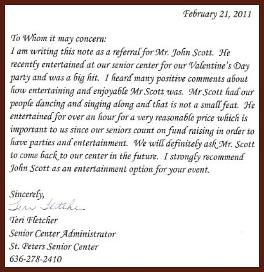 February 21, 2011
To Whom it may concern:
I am writing this note as a referral for Mr. John Scott. He
recently entertained at our senior center for our Valentine's Day
party and was a big hit. I heard many positive comments about
how entertaining and enjoyable Mr Scott was. Mr Scott had our
people dancing and singing along and that is not a small feat. He
entertained for over an hour for a very reasonable price which is
important to us since our seniors count on fund raising in order to
have parties and entertainment. We will definitely ask Mr. Scott
to come back to our center in the future. I strongly recommend
John Scott as an entertainment option for your event.
Sincerely,
Teri Fletcher
Teri Fletcher
Senior Center Administrator
St. Peters Senior Center
636-278-2410